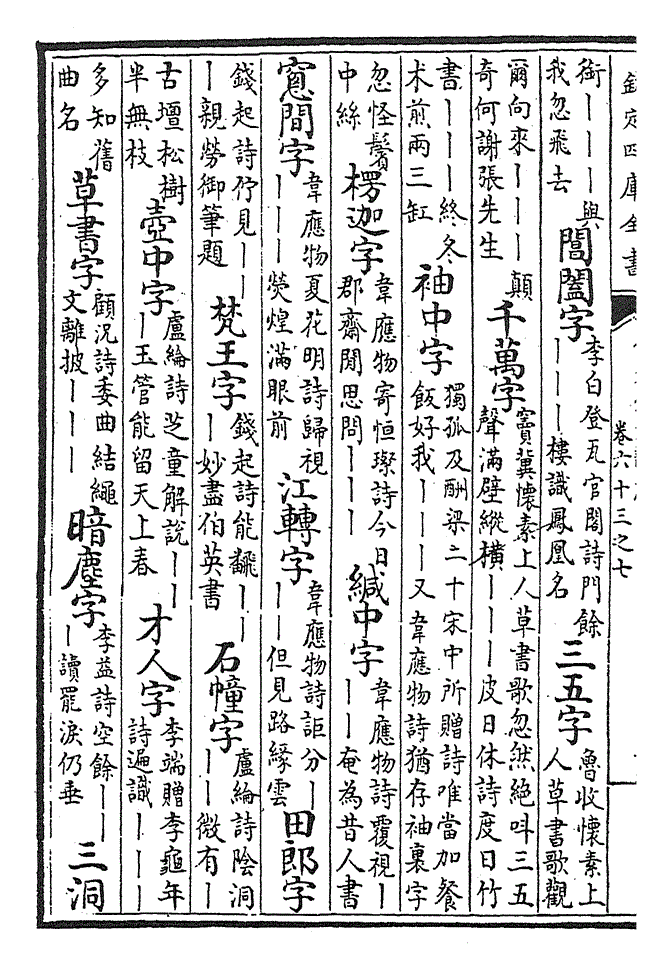 欽定四庫全書
卷六十三之七
銜｜｜｜與
我忽飛去
閶闔字
李白登瓦官閣詩門餘
｜｜｜樓識鳳凰名
三五字
魯收懷素上
人草書歌觀
爾向來｜｜｜顛
奇何謝張先生
千萬字
竇冀懷素上人草書歌忽然絶叫三五
聲滿壁縱橫｜｜｜皮日休詩度日竹
書｜｜｜｜終冬
术煎兩三缸
袖中字
獨孤及酬梁二十宋中所贈詩唯當加餐
飯好我｜｜｜又韋應物詩猶存袖裏字
忽怪鬢
中絲
楞迦字
韋應物寄恒璨詩今日
郡齋閒思問｜｜｜
緘中字
韋應物詩覆視｜
｜｜奄為昔人書
窻間字
韋應物夏花明詩歸視
｜｜｜熒煌滿眼前
江轉字
韋應物詩詎分｜
｜｜但見路緣雲
田郎字
錢起詩佇見｜｜
｜親勞御筆題
梵王字
錢起詩能飜｜｜
｜妙盡伯英書
石幢字
盧綸詩陰洞
｜｜微有｜
古壇松樹
半無枝
壺中字
盧綸詩芝童解說｜｜
｜玉管能留天上春
才人字
李端贈李龜年
詩遍識｜｜｜
多知舊
曲名
草書字
顧況詩委曲結繩
文離披｜｜｜
暗塵字
李益詩空餘｜｜
｜讀罷淚仍垂
三洞